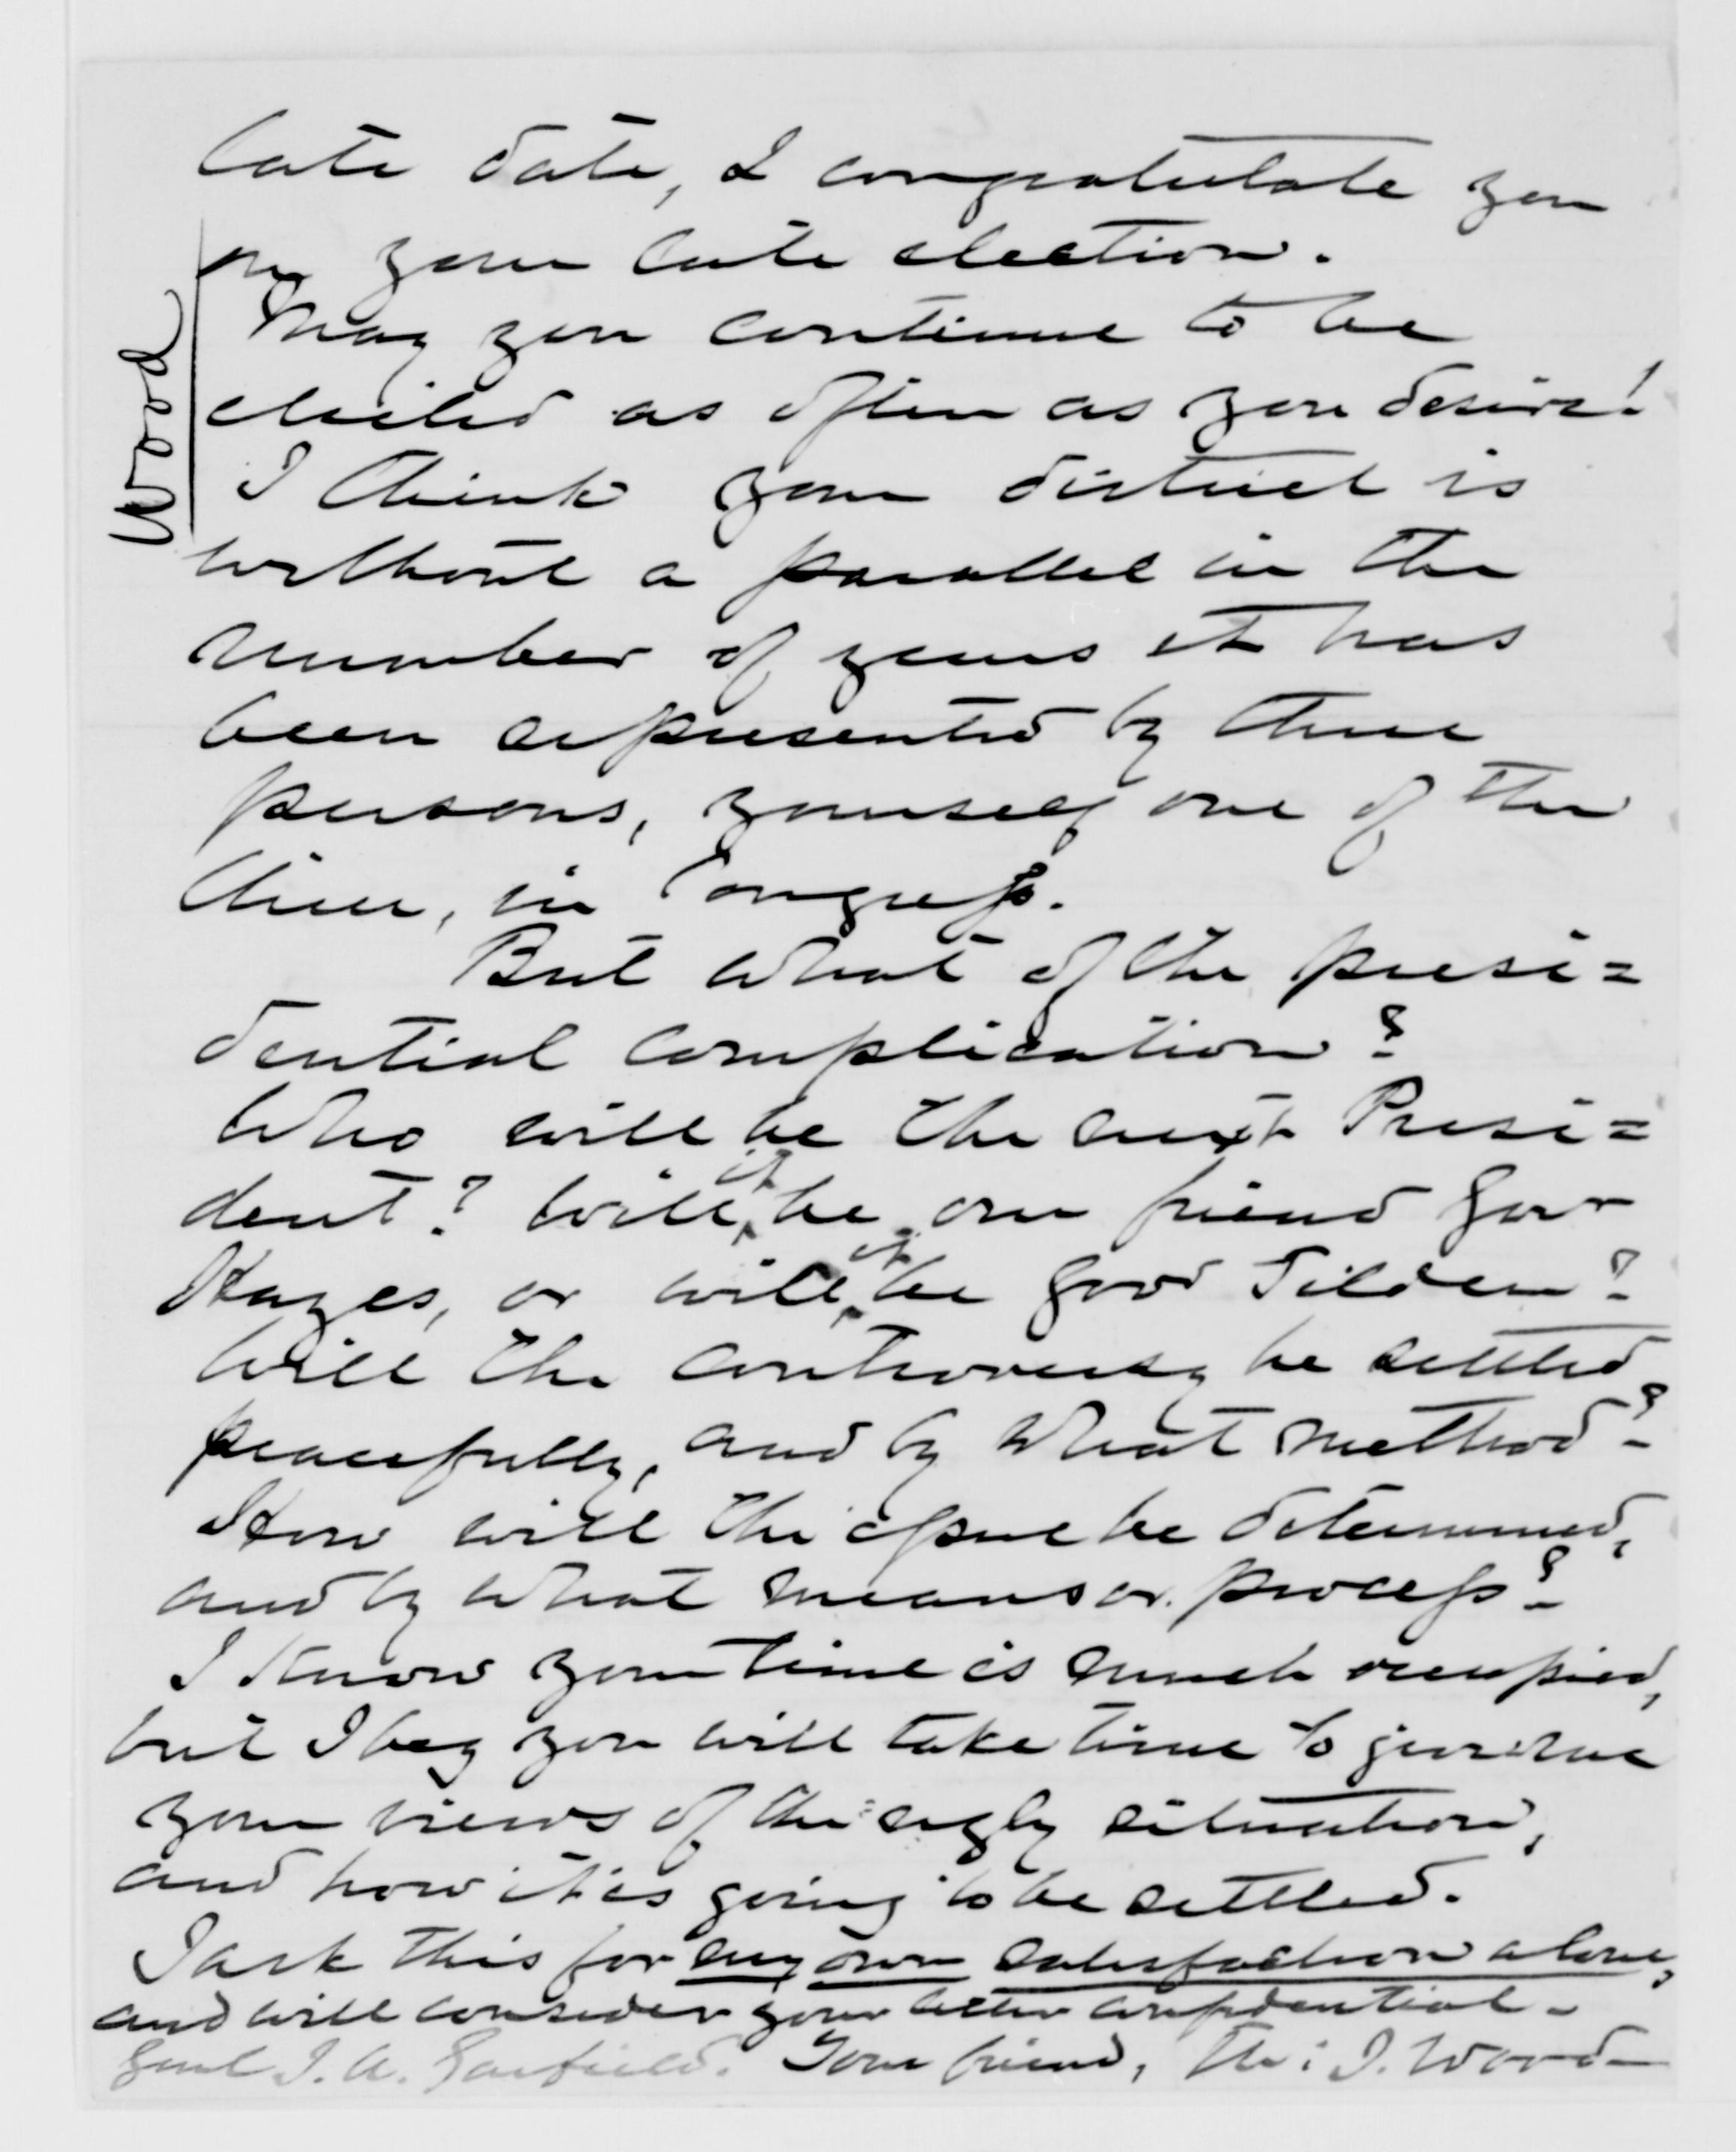 late date, I congratulate you
on your late election.
May you continue to be
elected as often as you desire!
I think your district is
without a parallel in the
number of years it has
been represented by three
persons, yourself one of the
three, in Congress.
But what of the presi=
dential complication?
Who will be the next Presi=
dent? Will it be our friend Govr
Hayes, or will it be Govr Tilden?
Will the controversy be settled
peacefully, and by what method?
How will the issue be determined,
and by what means or process?
I know your time is much occupied,
but I beg you will take time to give me
your views of the ugly situation,
and how it is going to be settled.
I ask this for my own satisfaction alone,
and will consider your letter confidential.
Genl J. A. Garfield. Your friend, Th: J. Wood
Wood